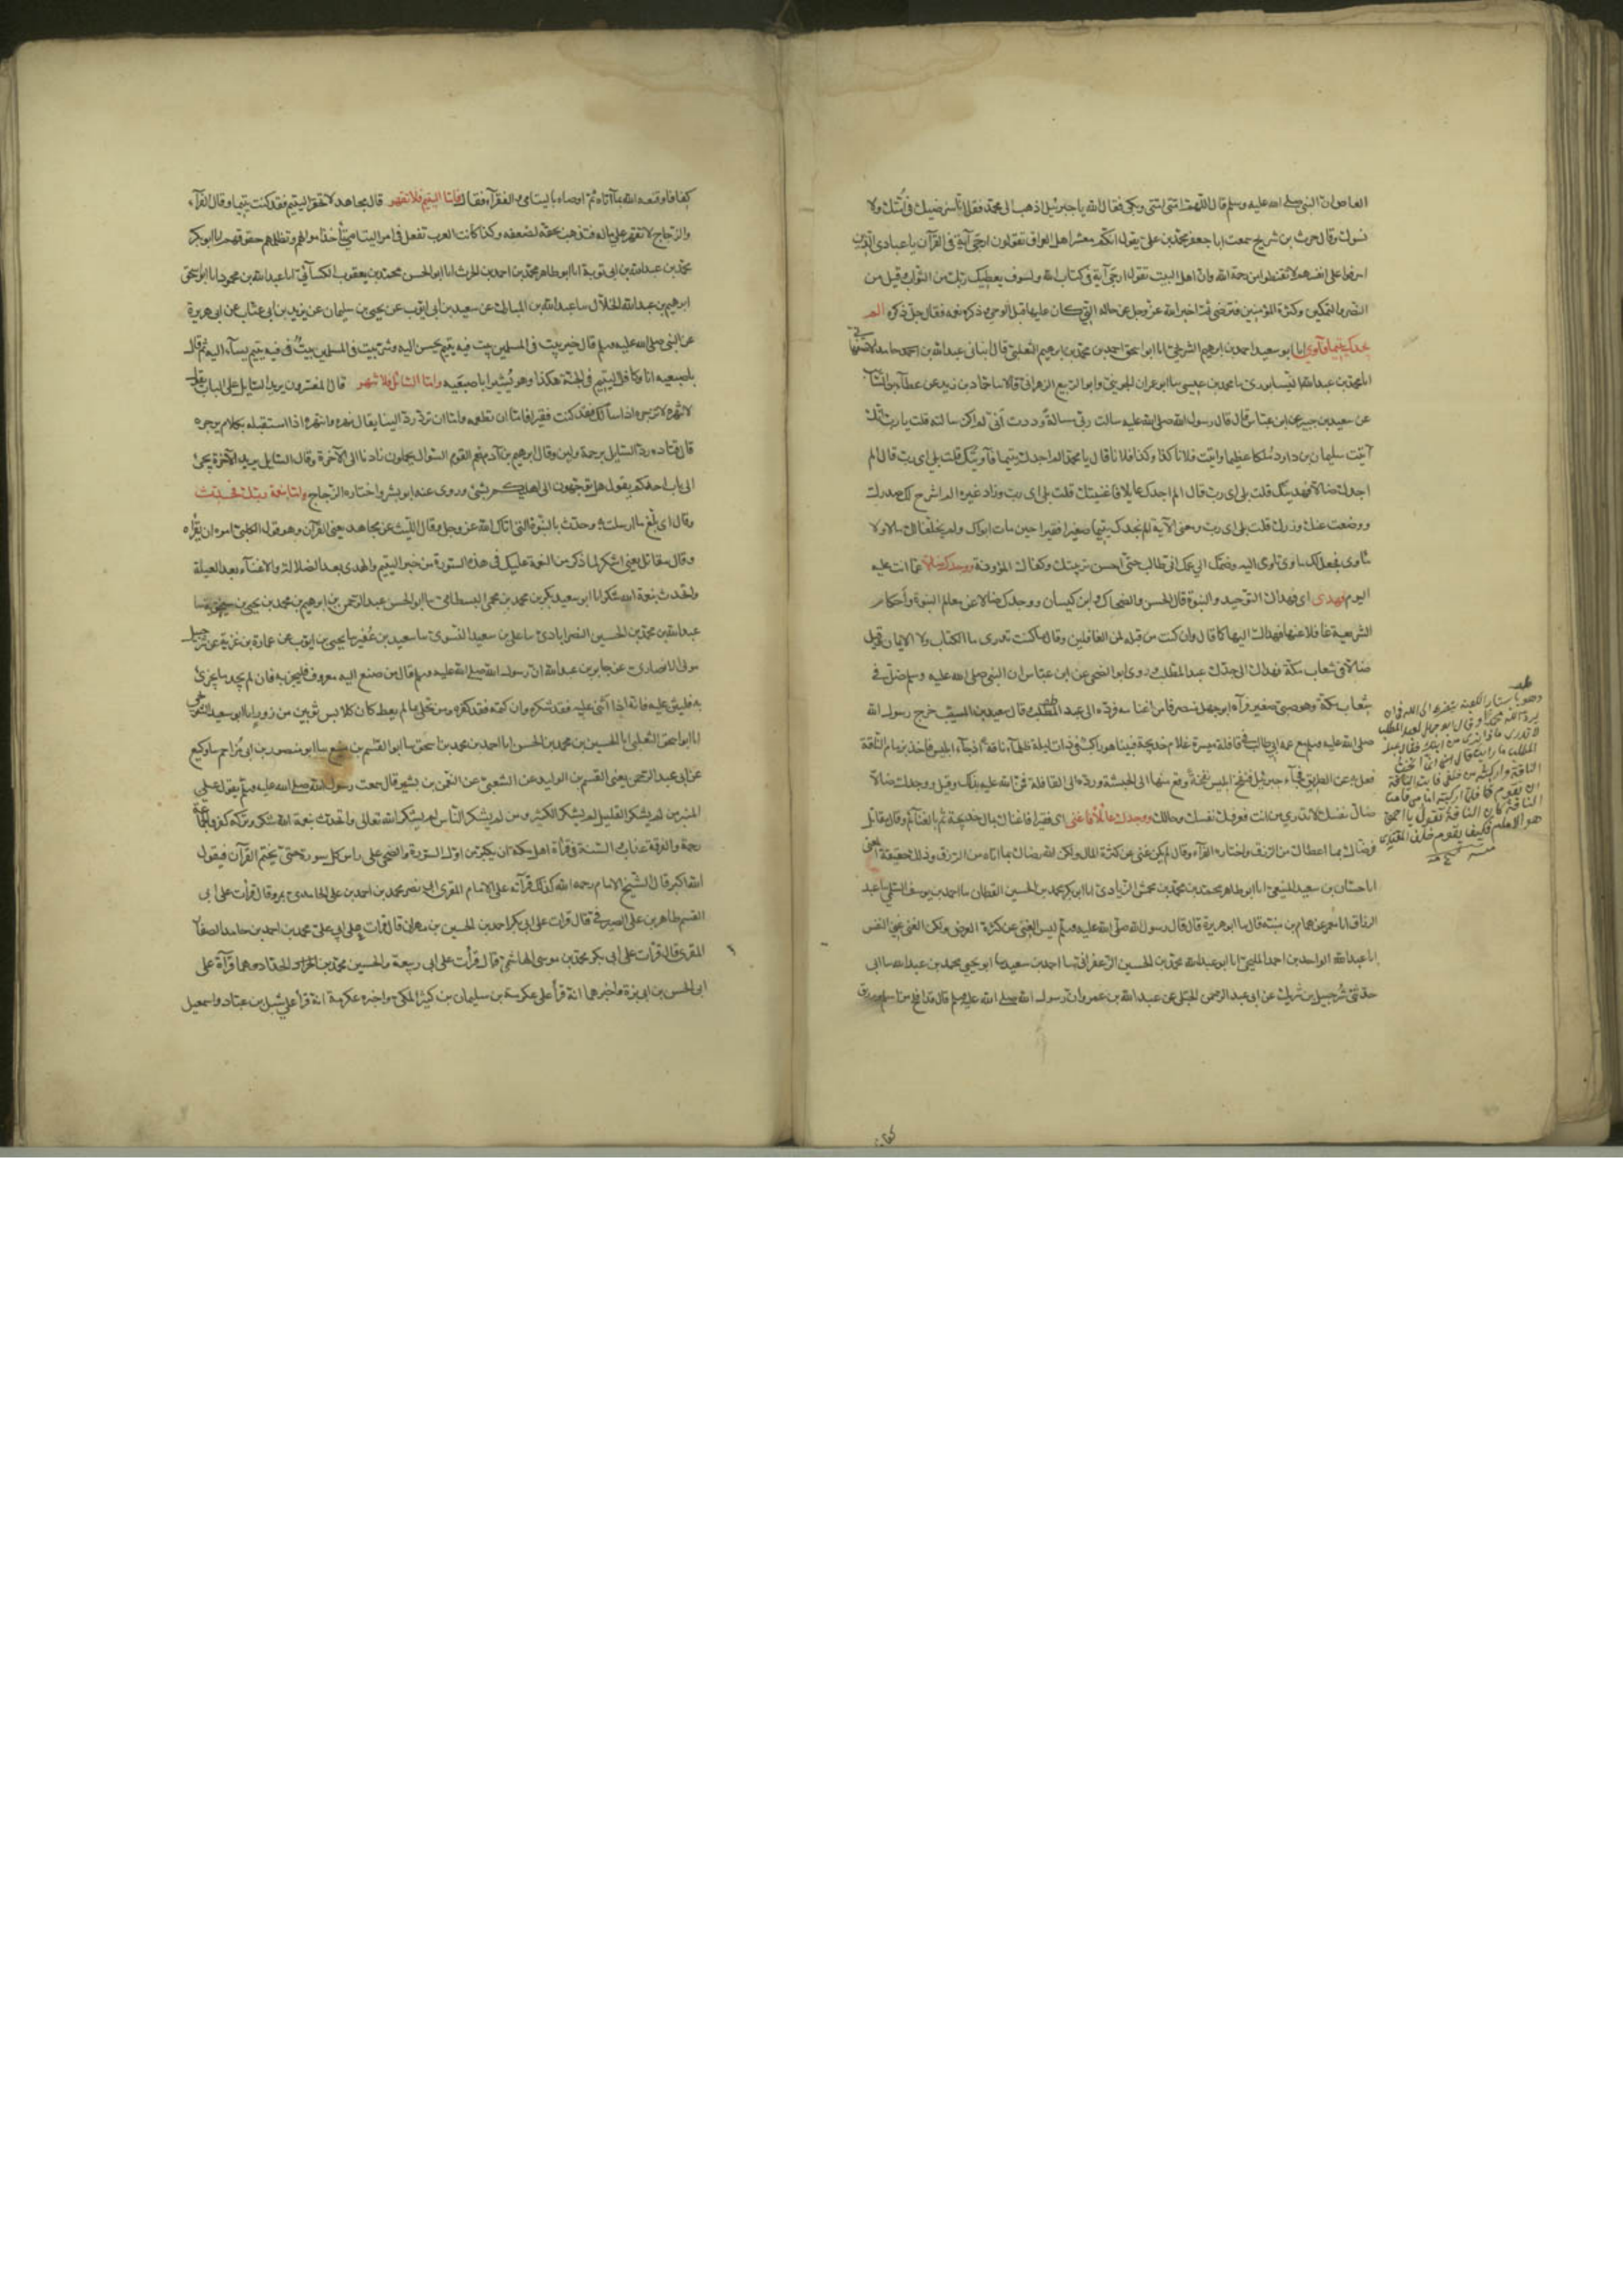 العاص ان النبي صلى الله عليه وسلم قال اللهم امتي امتي وبكى فقال الله يا جبرئيل اذهب الى محمد فقل انا سنرضيك في امتك ولا
نسوك وقال حرب بن شريح سمعت ابا جعفر محمد بن علي يقول انكم معشر اهل العراق تقولون ارجى آية في القرآن يا عبادي الذين
اسرفوا على انفسهم لا تقنطوا من رحمة الله وانا اهل البيت نقول ارجى آية في كتاب الله ولسوف يعطيك ربك من الثواب وقيل من
النصر والتمكين وكثرة المؤمنين فترضى ثم اخبر الله عز وجل عن حاله التي كان عليها قبل الوحي وذكره نعمه فقال جل ذكره الم
يجدك يتيما فآوى انا ابو سعيد احمد بن ابرهيم الشريحي انا ابو اسحق احمد بن محمد بن ابرهيم الثعلبي قال انباني عبد الله بن احمد حامد الاصفهاني
انا محمد بن عبد الله النيسابوري نا محمد بن عيسى نا ابو عمران الجويني وابو الربيع الزهراني قالا نا حماد بن زيد عن عطاء بن السائب
عن سعيد بن جبير عن ابن عباس قال قال رسول الله صلى الله عليه سالت ربي مسالة وددت اني لم اكن سالته قلت يا رب انك
آتيت سليمان بن داود ملكا عظيما وآتيت فلانا كذا وكذا فلانا قال يا محمد الم اجدك يتيما فآويتك قلت بلى اي رب قال الم
اجدك ضالا فهديتك قلت بلى اي رب قال الم اجدك عايلا فاغنيتك قلت بلى اي رب وزاد غيره الم اشرح لك صدرك
ووضعت عنك وزرك قلت بلى اي رب ومعنى الآية الم نجدك يتيما صغيرا فقيرا حين مات ابواك ولم يخلفا لك مالا ولا
ماوى فجعل لك ماوى تاوى اليه وضمك الى عمك ابي طالب حتى احسن تربيتك وكفاك المؤونة ووجدك ضالا عما انت عليه
اليوم فهدى اي فهداك للتوحيد والنبوة قال الحسن والضحاك وابن كيسان ووجدك ضالا عن معالم النبوة واحكام
الشريعة غافلا عنها فهداك اليها كما قال وان كنت من قبله لمن الغافلين وقال ما كنت تدري ما الكتاب ولا الايمان وقيل
ضالا في شعاب مكة فهداك الى جدك عبد المطلب روى ابو الضحى عن ابن عباس ان النبي صلى الله عليه وسلم ضل في
شعاب مكة وهو صبي صغير فرآه ابو جهل منصرفا من اغنامه فرده الى عبد المطلب وقال سعيد بن المسيب خرج رسول الله
صلى الله عليه وسلم مع عمه ابي طالب في قافلة ميسرة غلام خديجة فبينا هو راكب في ذات ليلة ظلماء ناقة اذ جاء ابليس فاخذ بزمام الناقة
فعدل به عن الطريق فجاء جبرئيل فنفخ ابليس نفخة وقع منها الى الحبشة ورده الى القافلة فمن الله عليه بذلك وقيل ووجدك ضالا
ضال نفسك لا تدري من انت فعرفك نفسك وحالك ووجدك عائلا فاغنى اي فقيرا فاغناك بمال خديجة ثم بالغنائم وقال مقاتل
فرضاك بما اعطاك من الرزق واختاره الفراء وقال لم يكن غنى عن كثرة المال ولكن الله رضاك بما اتاه من الرزق وذلك حقيقة الغنى
انا حسان بن سعيد المنيعي انا ابو طاهر محمد بن محمد بن محمش الزيادي انا ابو بكر محمد بن الحسين القطان نا احمد بن يوسف السلمي نا عبد
الرزاق انا معمر عن همام بن منبه قال نا ابو هريرة قال قال رسول الله صلى الله عليه وسلم ليس الغنى عن كثرة العرض ولكن الغنى غنى النفس
انا عبد الله الواحد بن احمد المليحي انا ابو عبد الله محمد بن الحسين الزعفراني نا احمد بن سعيد نا ابو يحيى محمد بن عبد الله نا ابي
حدثني شرحبيل بن شريك عن ابي عبد الرحمن الحبلي عن عبد الله بن عمرو ان رسول الله صلى الله عليه وسلم قال قد افلح من اسلم ورزق
وهو باستار الكعبة يتضرع الى الله في ان
يرد اليه محمدا وقال ابو جهل لعبد المطلب
لا تدري ماذا نرى من ابنك فقال عبد
المطلب ما رايت قال اني انخت
الناقة واركبته من خلفي فابت الناقة
ان تقوم فلما اركبته امامي قامت
الناقة كان الناقة تقول يا احمق
هو الامام فكيف يقوم خلف المقتدي
كفافا وقنعه الله بما آتاه ثم اوصاه باليتامى والفقراء فقال فاما اليتيم فلا تقهر قال مجاهد لا تحقر اليتيم فقد كنت يتيما وقال الفراء
والزجاج لا تقهر على ماله فتذهب بحقه لضعفه وكذا كانت العرب تفعل في امر اليتامى تأخذ اموالهم وتظلمهم حقوقهم انا ابو بكر
محمد بن عبد الله بن ابي توبة انا ابو طاهر محمد بن احمد بن الحرث انا ابو الحسن محمد بن يعقوب الكسائي انا عبد الله بن محمود انا ابو اسحق
ابرهيم بن عبد الله الخلال نا عبد الله بن المبارك عن سعيد بن ابي ايوب عن يحيى بن سليمان عن يزيد بن ابي عتاب عن ابي هريرة
عن النبي صلى الله عليه وسلم قال خير بيت في المسلمين بيت فيه يتيم يحسن اليه وشر بيت في المسلمين بيت فيه يتيم يساء اليه ثم قال
باصبعيه انا وكافل اليتيم في الجنة هكذا وهو يشير باصبعيه واما السائل فلا تنهر قال المفسرون يريد السايل على الباب يقول
لا تنهره لا تزجره اذا سألك فقد كنت فقيرا فاما ان تطعمه واما ان ترده ردا لينا يقال نهره وانتهره اذا استقبله بكلام يزجره
قال قتادة رد السايل برحمة ولين وقال ابرهيم بن آدم نعم القوم السوال يحملون زادنا الى الآخرة وقال السايل يريد الآخرة يجئ
الى باب احدكم يقول هل توجهون الى اهليكم بشئ وروى عنه ابو بشر واختاره الزجاج واما بنعمة ربك فحدث
وقال اي بلغ ما ارسلت به وحدث بالنبوة التي اتاك الله عز وجل وقال الليث عن مجاهد يعني القرآن وهو قول الكلبي امره ان يقراه
وقال مقاتل يعني اشكر لما ذكر من النعمة عليك في هذه السورة من جبر اليتيم والهدى بعد الضلالة والاغناء بعد العيلة
والتحدث بنعمة الله شكر انا ابو سعيد بكر بن محمد بن محمى البسطامي نا ابو الحسن عبد الرحمن بن ابرهيم بن محمد بن يحيى بن سختويه نا
عبد الله بن محمد بن الحسين النصرابادي نا علي بن سعيد النسوي نا سعيد بن عفير نا يحيى بن ايوب عن عمارة بن غزية عن شرحبيل
مولى الانصاري عن جابر بن عبد الله ان رسول الله صلى الله عليه وسلم قال من صنع اليه معروف فليجز به فان لم يجد ما يجزئ
به فليثن عليه فانه اذا اثنى عليه فقد شكره وان كتمه فقد كفره ومن تحلى بما لم يعط كان كلابس ثوبين من زور انا ابو سعيد الشريحي
انا ابو اسحق الثعلبي انا الحسين بن محمد بن الحسن انا احمد بن محمد بن اسحق نا ابو القسم بن منيع نا ابو منصور بن ابي مزاحم نا وكيع
عن ابي عبد الرحمن يعني القسم بن الوليد عن الشعبي عن النعمن بن بشير قال سمعت رسول الله صلى الله عليه وسلم يقول على
المنبر من لم يشكر القليل لم يشكر الكثير ومن لم يشكر الناس لم يشكر الله تعالى والتحدث بنعمة الله شكر وتركه كفر والجماعة
رحمة والفرقة عذاب السنة في قرأة اهل مكة ان يكبر من اول السورة والضحى على راس كل سورة حتى يختم القرآن فيقول
الله اكبر قال الشيخ الامام رحمه الله كذلك قرأته على الامام المقرئ ابي نصر محمد بن احمد بن علي الحامدي بمرو قال قرأت على ابي
القسم طاهر بن علي الصيرفي قال قرات على ابي بكر احمد بن الحسين بن مهران قال قرات على ابي علي محمد بن احمد بن حامد الصفار
المقرئ قال قرأت على ابي بكر محمد بن موسى الهاشمي قال قرأت على ابي ربيعة والحسين محمد بن الحداد وهما قرآة على
ابي الحسن بن ابي بزة واخبرهما انه قرأ على عكرمة بن سليمان بن كثير المكي واخبره عكرمة انه قرأ على شبل بن عباد واسمعيل